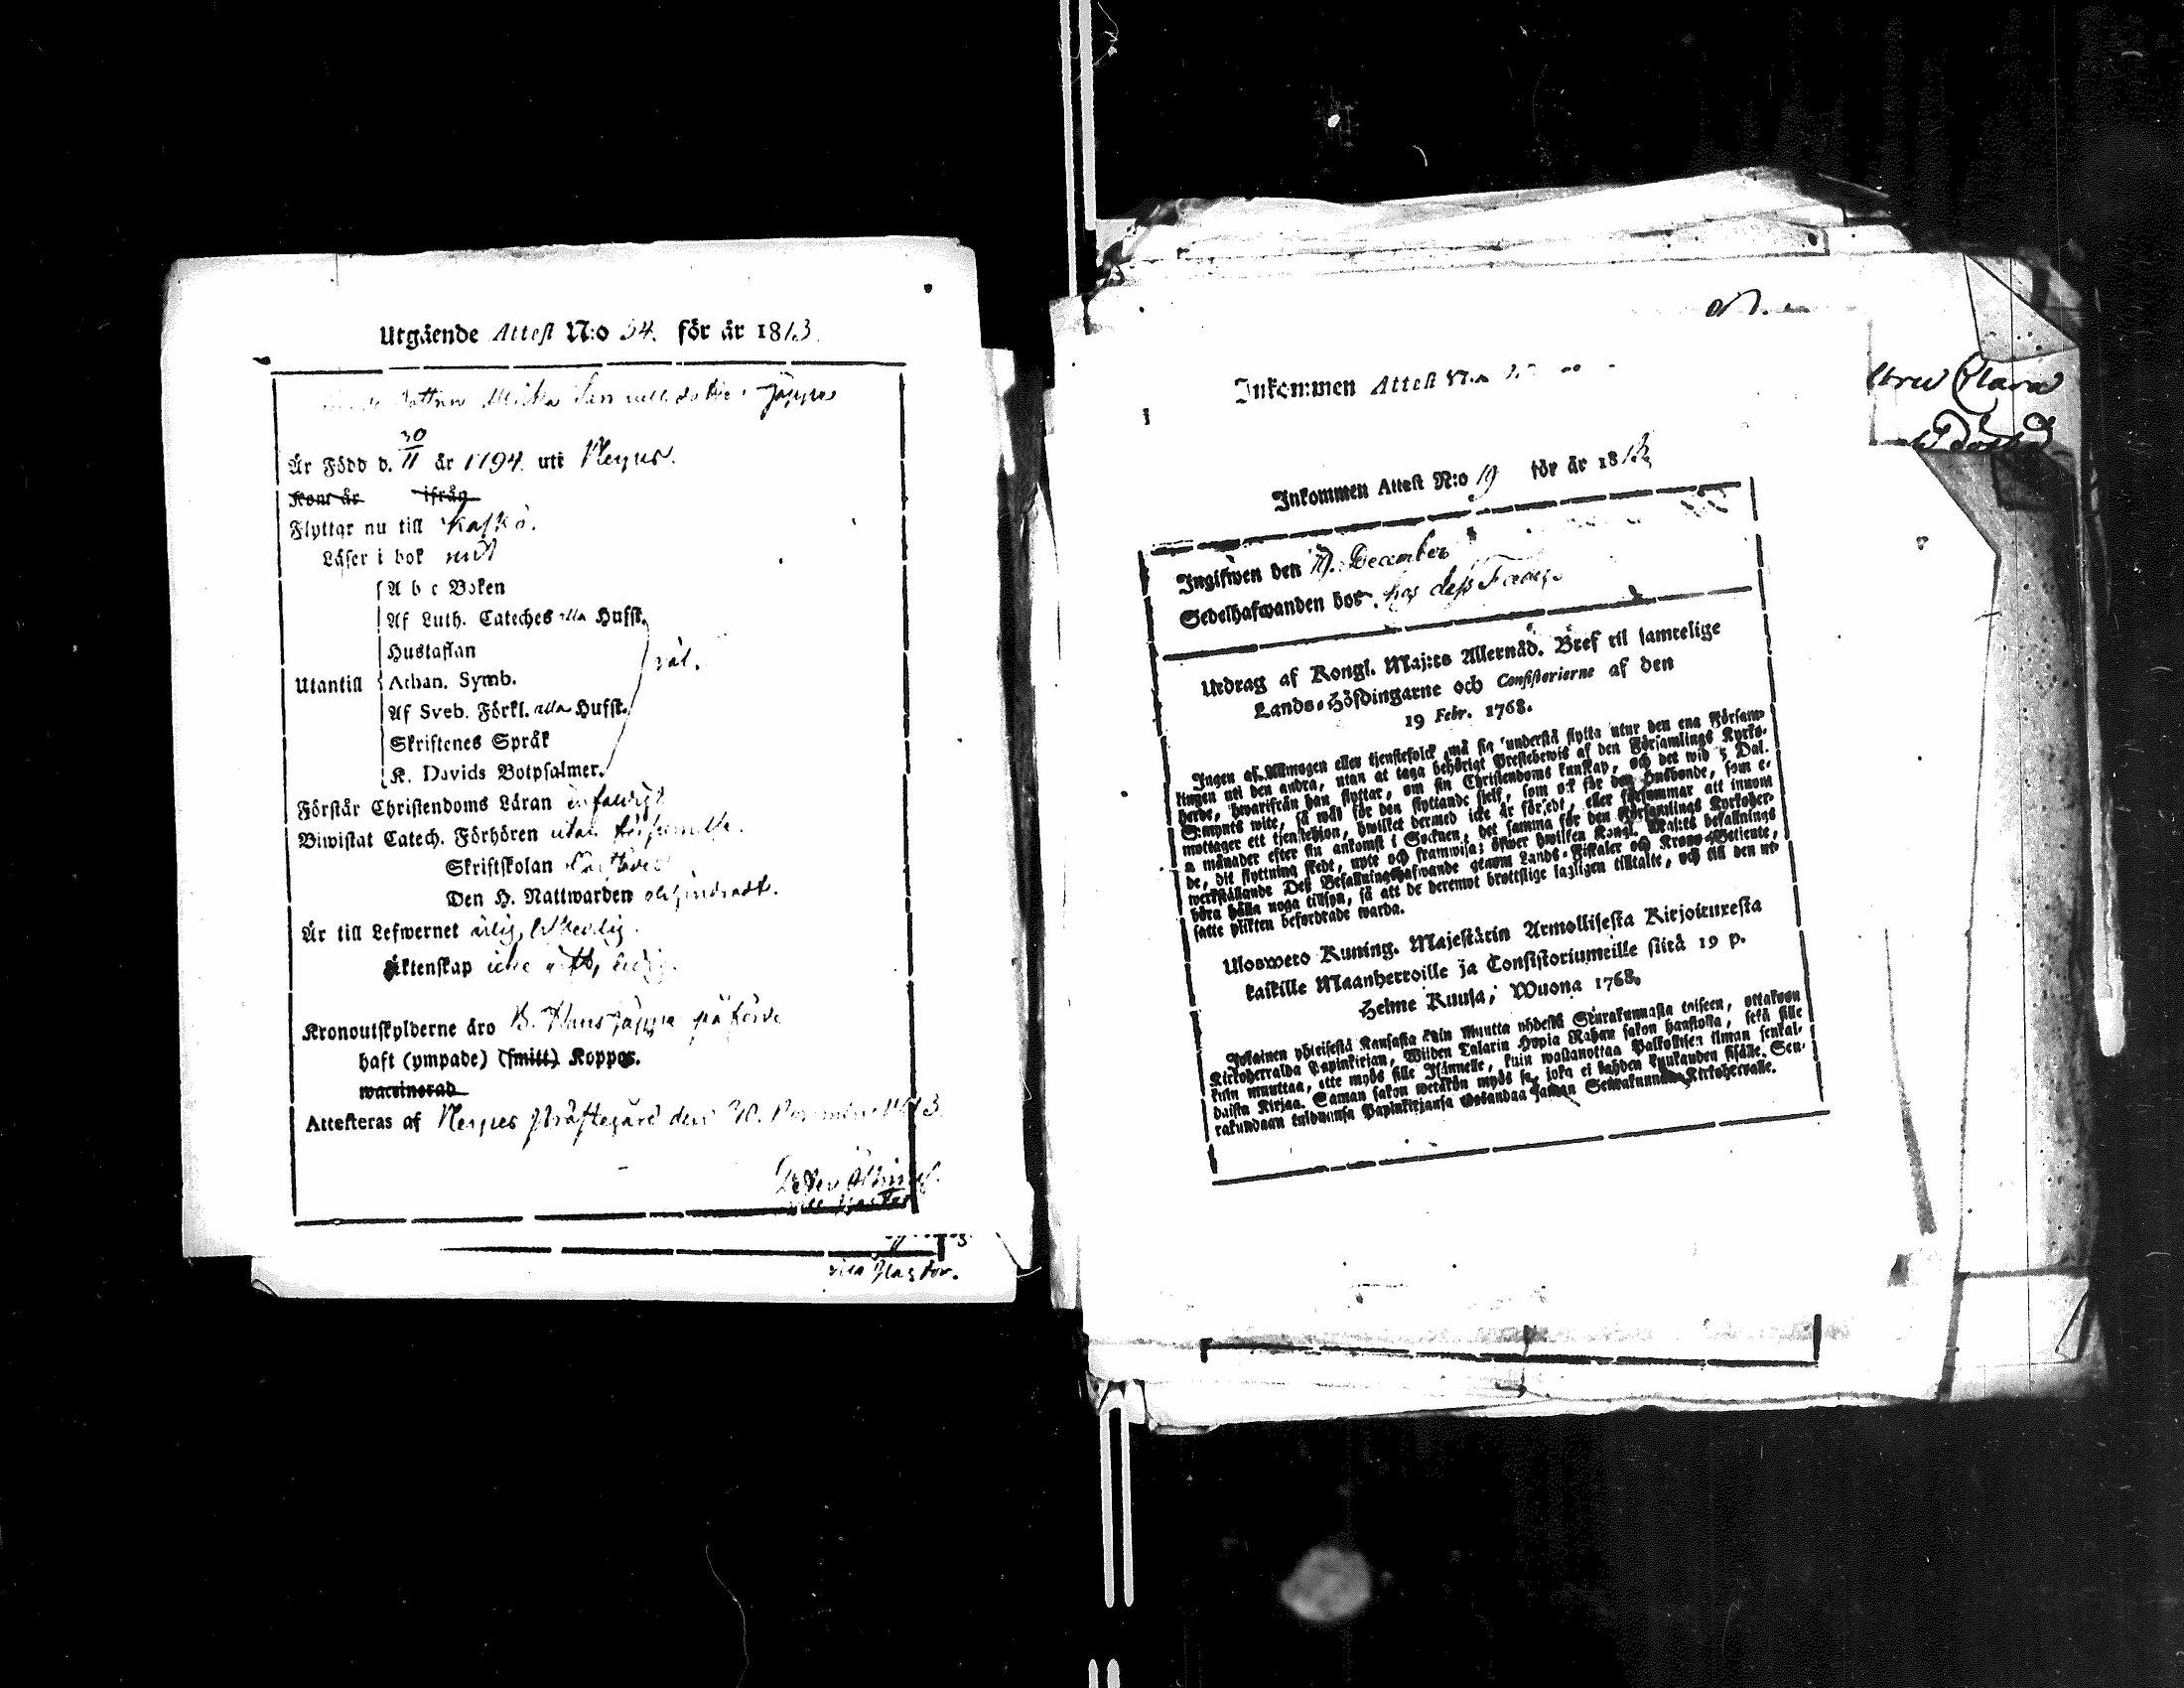 Utgående Attest N:o 34. för år 1813.
dottren Jåppas
Är Född d. 30/11 år 1794. uti Nerpes.
Kom år ifrån
Flyttar nu till Kaskö.
Läser i bok
A b c Boken
Af Luth. Cateches alla Hufst.
Hustaflan
Utantill Athan. Symb. väl.
Af Sveb. Förkl. alla Hufst.
Skriftenes Språk
K. Davids Botpsalmer.
Förstår Christendoms Läran enfaldigt
Biwistat Catech. Förhören utan
Skriftskolan
Den H. Nattwarden ohindradt.
Är till Lefwernet ärlig,
Äktenskap icke ledig.
Kronoutskylderne äro
haft (ympade) (smitt) Koppor.
waccinerad
Attesteras af Nerpes Prästegård den 30. November 1813.
vice Pastor
vice Pastor.
Inkommen Attest N:o
Inkommen Attest N:o 19 för år 1813
Ingifwen den 19. December
Sedelhafwanden bor hos dess
Utdrag af Kongl. Maj:ts Allernåd. Bref til samtelige
Lands-Höfdingarne och Consistorierne af den
19 Febr. 1768.
Ingen af Allmogen eller tjenstefolck må sig understå flytta utur den ena Försam-
lingen uti den andra, utan at taga behörigt Prestebewis af den Församlings Kyrko-
herde, hwarifrån han flyttar, om sin Christendoms kunskap, och det wid 5 Dal.
S:mynts wite, så wäl för den flyttande sielf, som ock för den Husbonde, som e-
mottager ett tjenstehion, hwilket dermed icke är försedt, eller försummar att innom
2 månader efter sin ankomst i Socknen, det samma för den Församlings Kyrkoher-
de, dit flyttning skedt, upte och framwisa; öfwer hwilken Kongl. Maj:ts befallnings
werkställande Dess Befallningshafwande genom Lands-Fiskaler och Krono-Betiente,
böra hålla noga tillsyn, så att de deremot brottslige lagligen tilltalte, och till den ut-
satte plikten befordrade warda.
Uloswero Kuning. Majestärin Armollisesta Kirjoituxesta
kaikille Maanherroille ja Consistoriumeille siitä 19 p.
Helme Kuusa, Wuona 1768.
Jokainen yhteisestä Kansasta kuin Muutta yhdestä Seurakunnasta toiseen, ottakoon
Kirkoherralda Papinkirjan, Wiiden Talarin Hopia Rahan sakon haastolla, sekä sille
kuin muuttaa, että myös sille Isännelle, kuin wastanottaa Palkollisen ilman senkal-
daista Kirjaa. Saman sakon wetäkön myös se, joka ei kahden kuukauden sisälle, Seu-
rakundaan tulduansa Papinkirjansa osotandaa saman Seurakunnan Kirkoherralle.
Clara